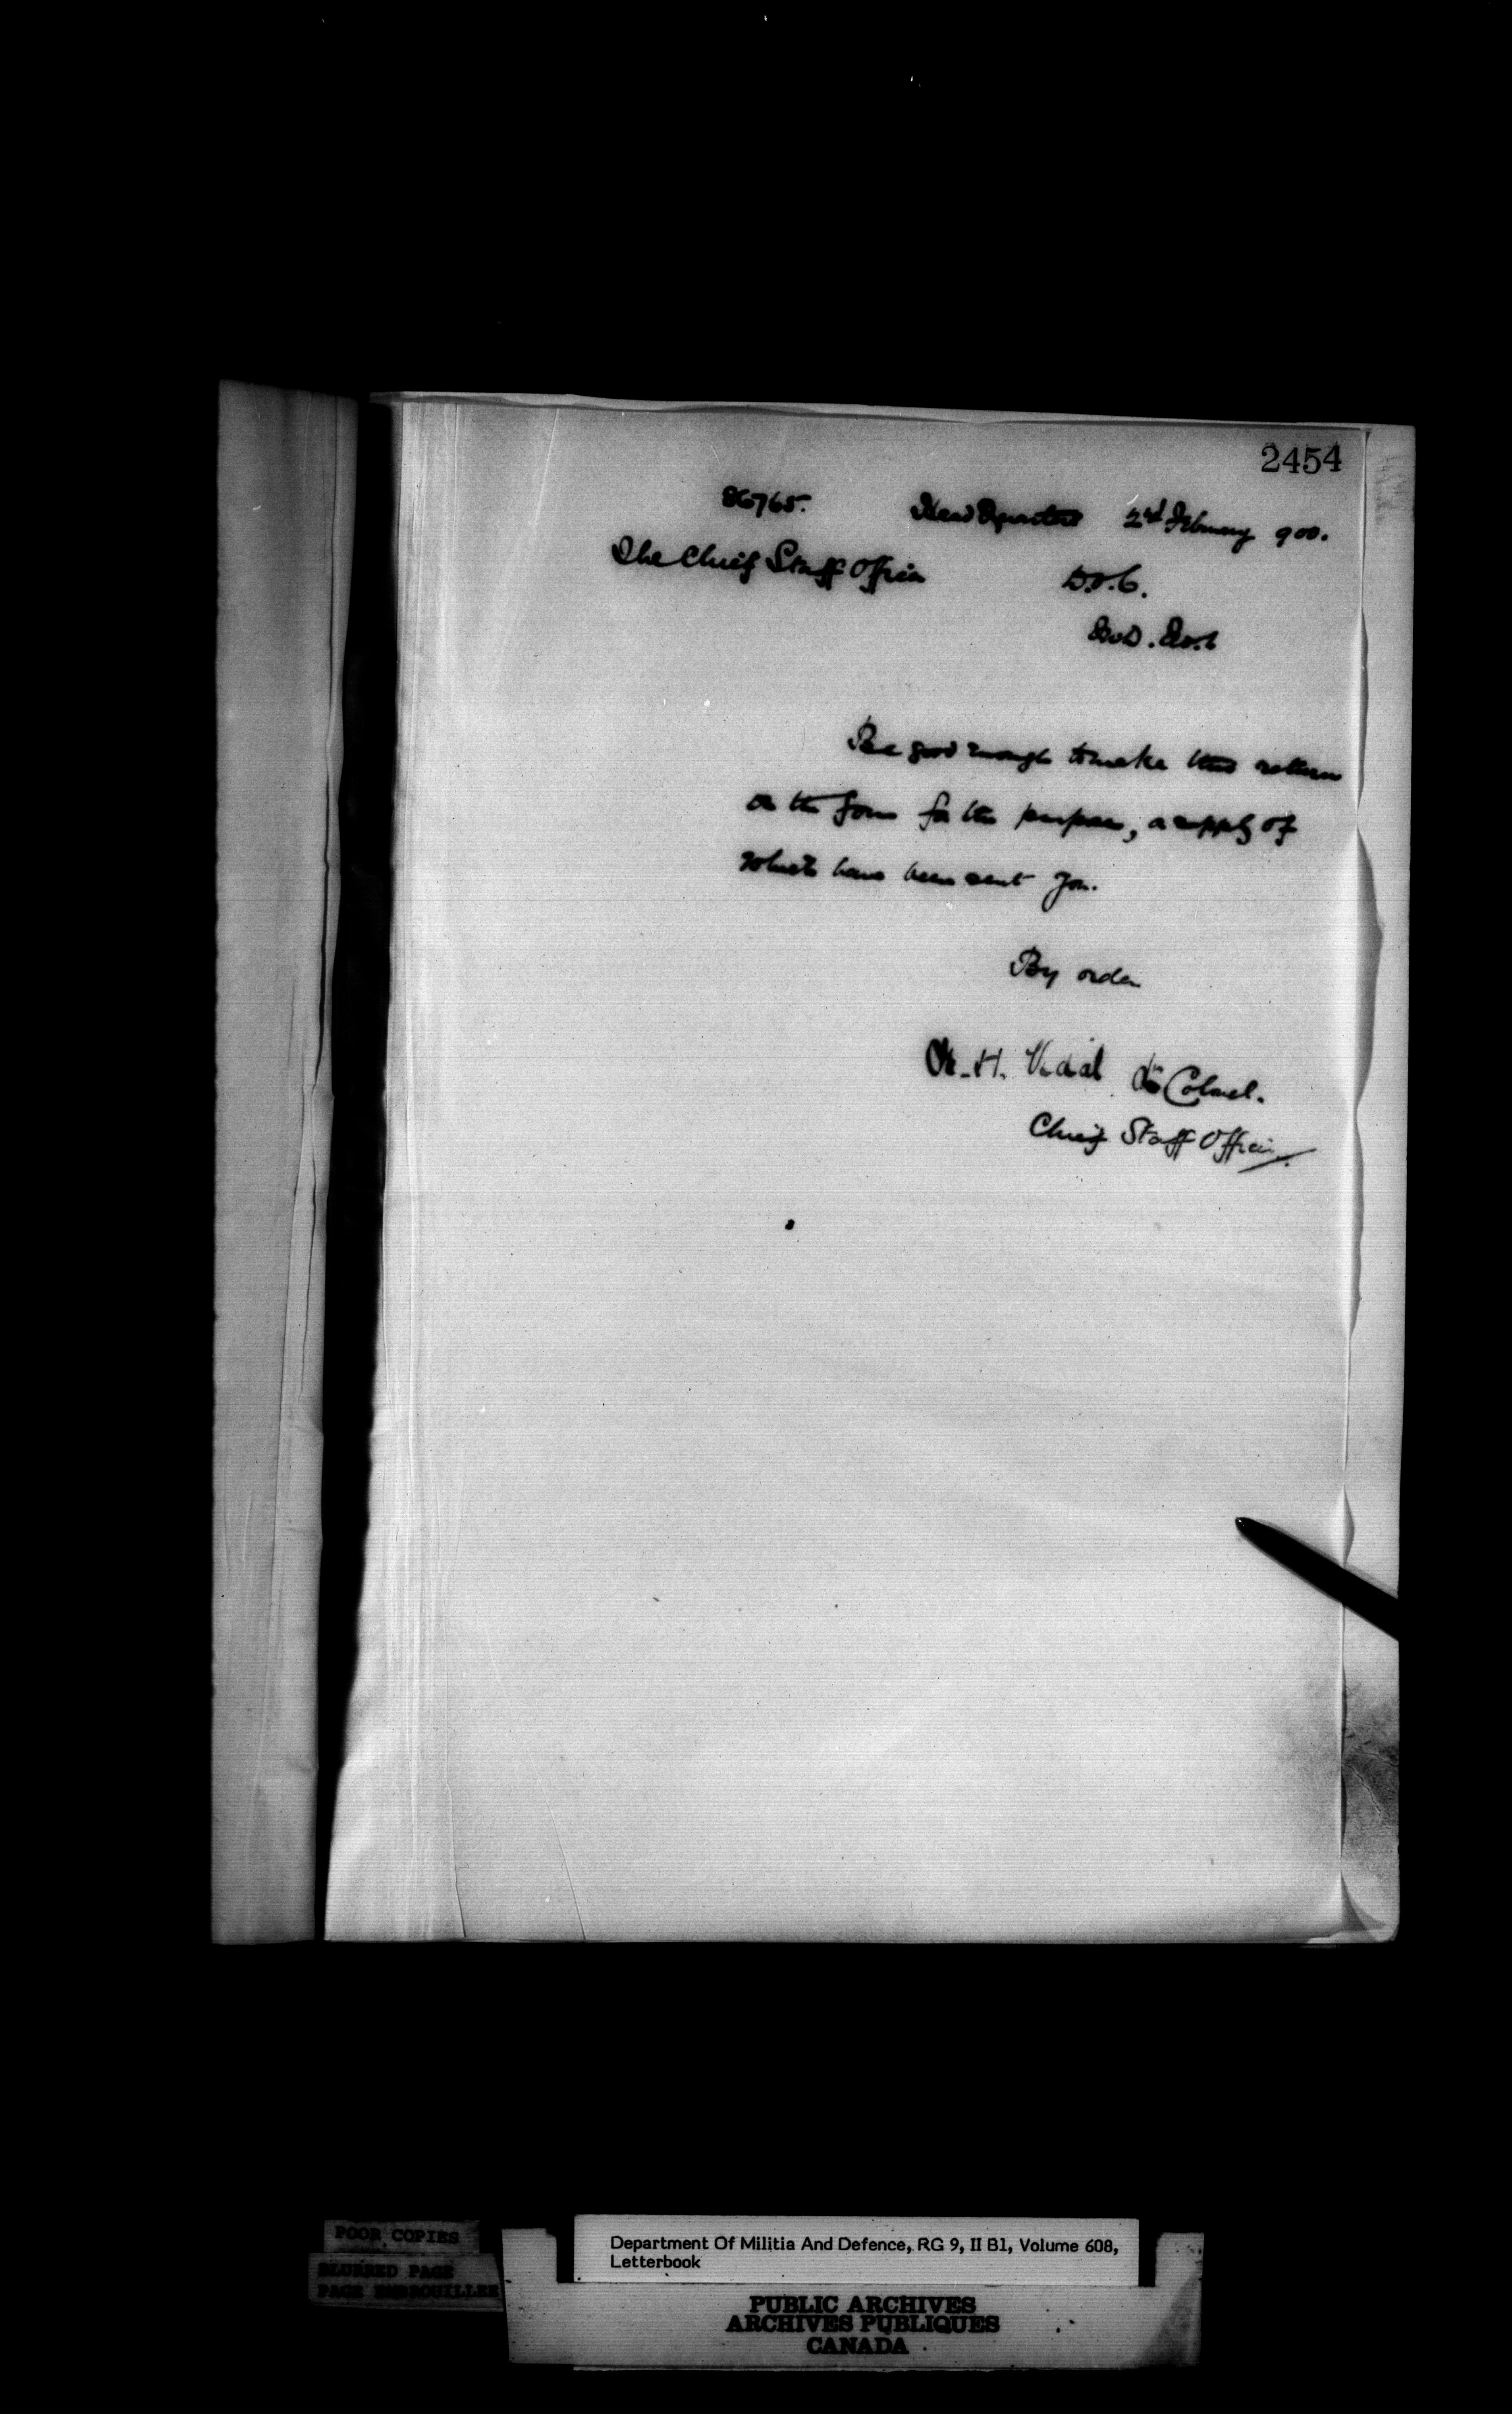 2454
86765. Head Quarters 2nd February 900.
The Chief Staff Officer D.O.C.
Be good enough to make this return
on the form for the purpose, a supply of
which have been sent you.
By order
H. Vidal Lt Colonel.
Chief Staff Officer.
POOR COPIES
BLURRED PAGE
PAGE EMBROUILLEE
Department Of Militia And Defence, RG 9, II B1, Volume 608,
Letterbook
PUBLIC ARCHIVES
ARCHIVES PUBLIQUES
CANADA